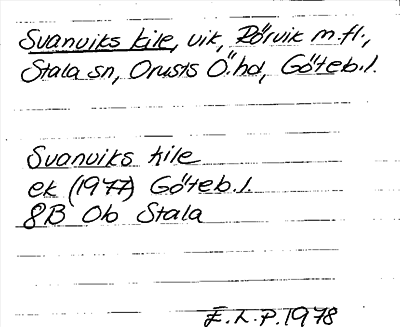 Svanviks kile, vik, Rörvik m.fl.,
Stala sn, Orusts Ö.hd, Göteb.l.
Svanviks kile
ek (1977) Göteb.l.
8B Ob Stala
E.L.P.1978